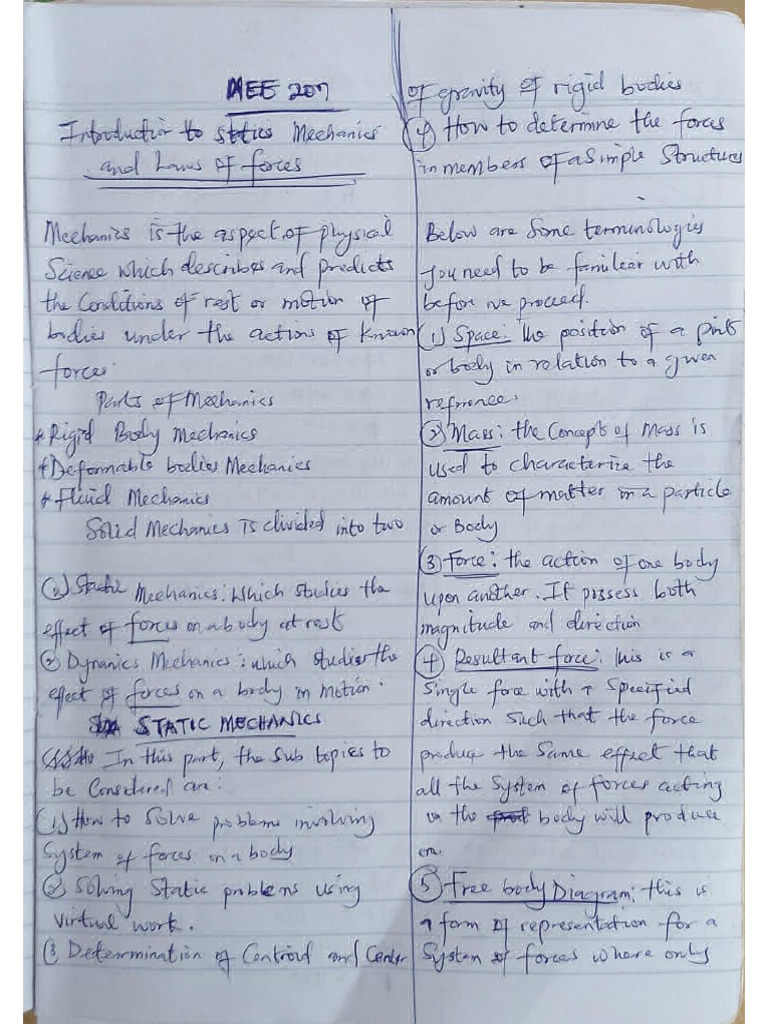 MEE 207
Introduction to statics Mechanics
and Laws of forces
Mechanics is the aspect of physical
Science which describes and predicts
the Conditions of rest or motion of
bodies under the actions of Known
forces.
Parts of Mechanics
* Rigid Body Mechanics
* Deformable bodies Mechanics
* Fluid Mechanics
Solid Mechanics is divided into two
(1) Static Mechanics: which studies the
effect of forces on a body at rest
(2) Dynamics Mechanics: which studies the
effect of forces on a body in motion.
STATIC MECHANICS
In this part, the sub topics to
be Considered are:
(1) How to solve problems involving
System of forces on a body
(2) Solving Static problems using
virtual work.
(3) Determination of Centroid and Center
of gravity of rigid bodies
(4) How to determine the forces
in members of a simple structures
Below are some terminologies
you need to be familiar with
before we proceed.
(1) Space: The position of a point
or body in relation to a given
reference.
(2) Mass: the Concept of Mass is
used to characterize the
amount of matter in a particle
or Body
(3) Force: the action of one body
upon another. It possess both
magnitude and direction
(4) Resultant force: This is a
Single force with a Specified
direction such that the force
produce the same effect that
all the system of forces acting
on the body will produce
on.
(5) Free body Diagram: this is
a form of representation for a
System of forces where only